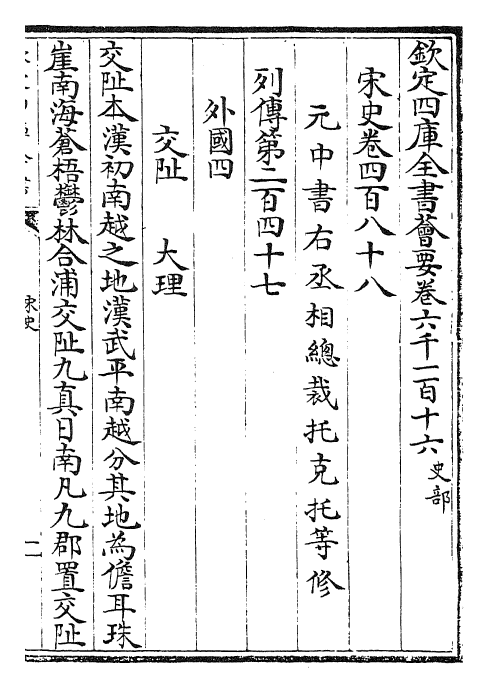 欽定四庫全書薈要卷六千一百十六 史部
宋史卷四百八十八
元中書右丞相總裁托克托等修
列傳第二百四十七
外國四
交阯 大理
交阯本漢初南越之地漢武平南越分其地為儋耳珠
崖南海蒼梧鬱林合浦交阯九真日南凡九郡置交阯
宋史